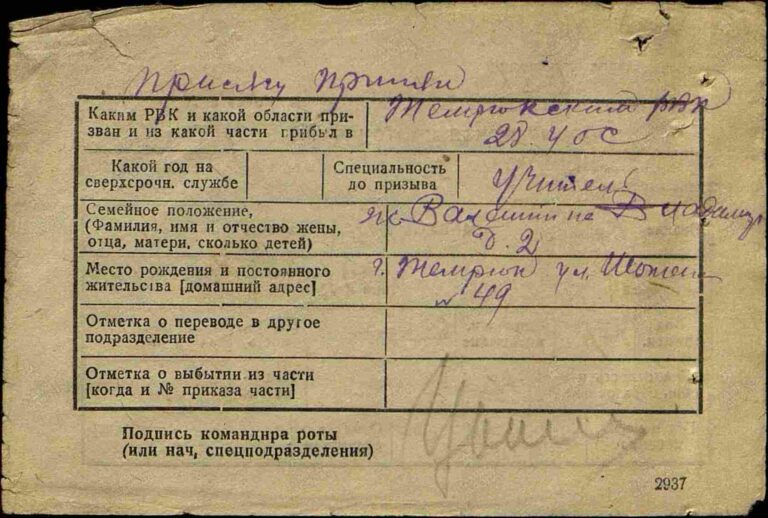 присягу принял
Каким РВК и какой области при-
зван и из какой части прибыл в
Темрюкским РВК
28 у ос
Какой год на
сверхсрочн. службе
Специальность
до призыва
учитель
Семейное положение,
(Фамилия, имя и отчество жены,
отца, матери, сколько детей)
ж.
д. 2
Место рождения и постоянного
жительства [домашний адрес]
г. Темрюк ул.
№ 49
Отметка о переводе в другое
подразделение
Отметка о выбытии из части
[когда и № приказа части]
Подпись командира роты
(или нач, спецподразделения)
2937